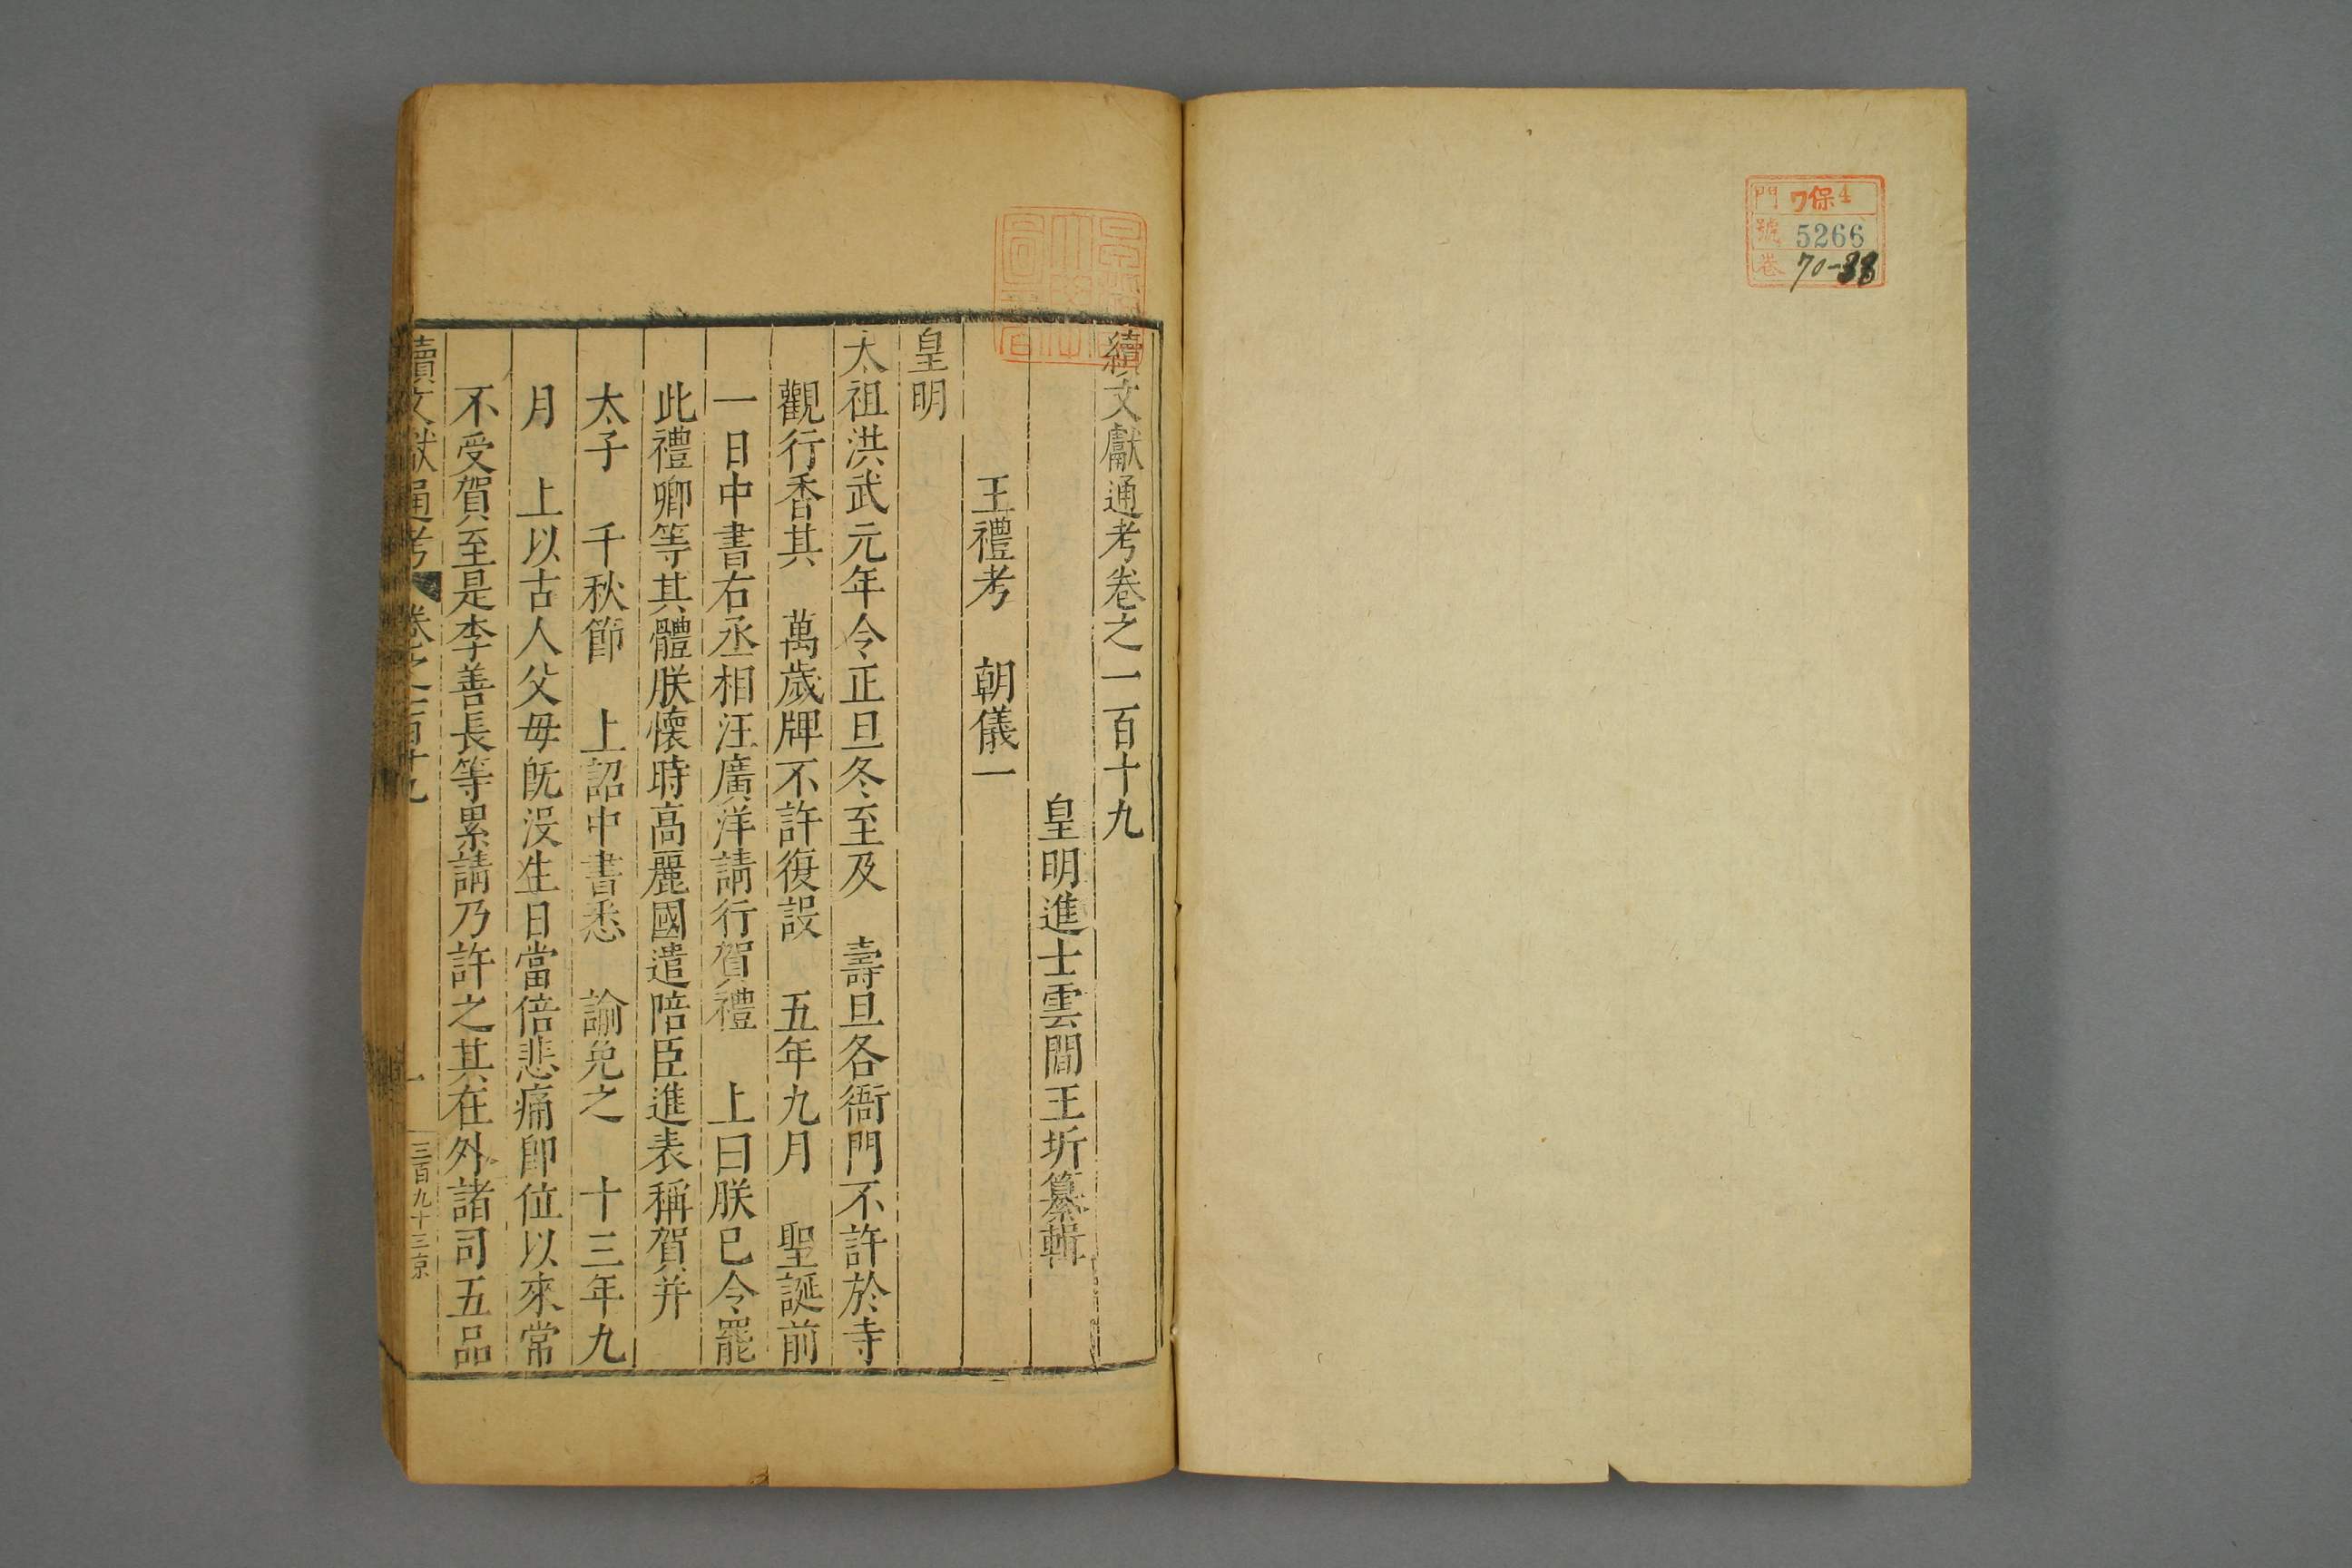 門 ワ保4
號 5266
卷 70-38
續文獻通考卷之一百十九
皇明進士雲間王圻纂輯
王禮考 朝儀一
皇明
太祖洪武元年令正旦冬至及 壽旦各衙門不許於寺
觀行香其 萬歲牌不許復設 五年九月 聖誕前
一日中書右丞相汪廣洋請行賀禮 上曰朕已令罷
此禮卿等其體朕懷時高麗國遣陪臣進表稱賀并
太子 千秋節 上詔中書悉 諭免之 十三年九
月 上以古人父母既没生日當倍悲痛卽位以來常
不受賀至是李善長等累請乃許之其在外諸司五品
續文獻通考 卷之一百十九 一 三百九十三京